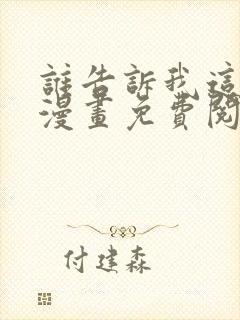 誰告訴我這
漫畫免費閱
付建森